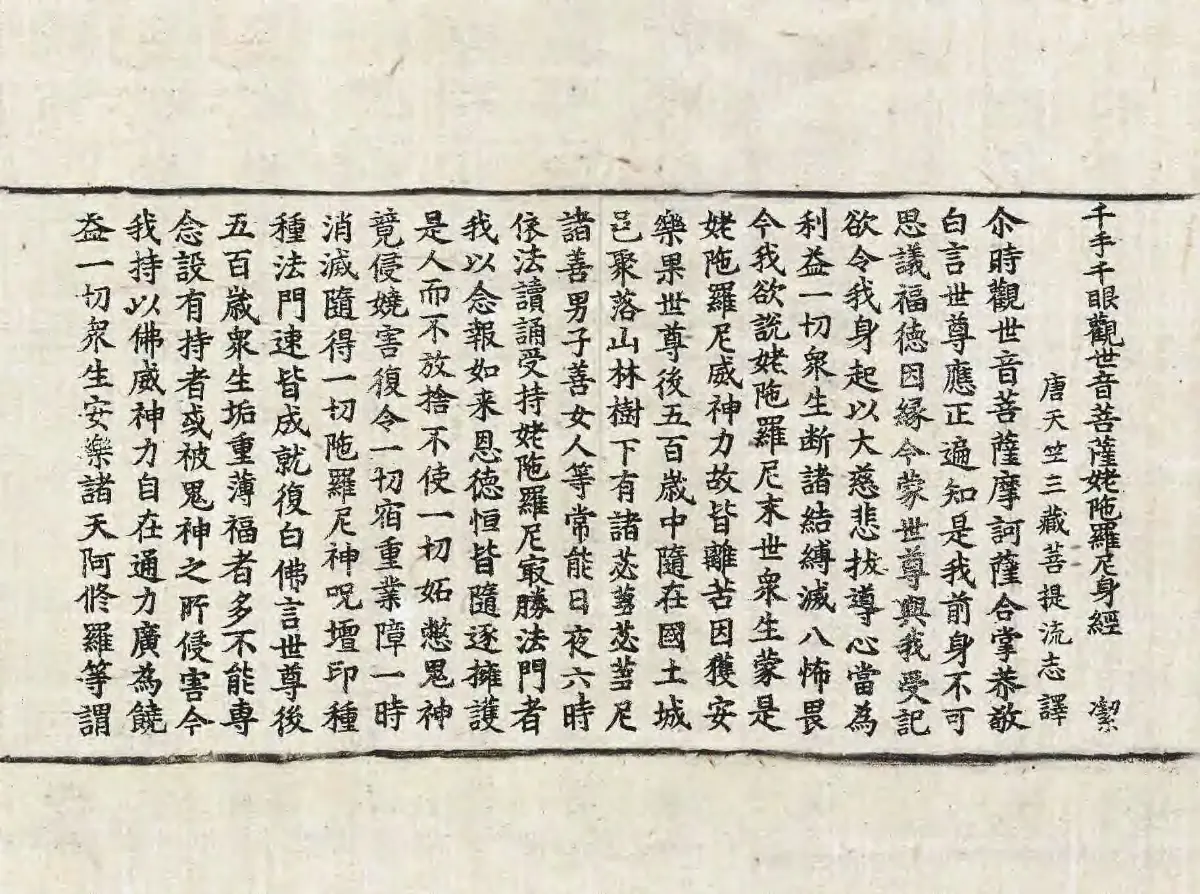 千手千眼觀世音菩薩姥陁羅尼身經　潔
唐天竺三藏菩提流志譯
尒時觀世音菩薩摩訶薩合掌恭敬
白言世尊應正遍知是我前身不可
思議福德因緣今蒙世尊與我受記
欲令我身起以大慈悲拔導心當為
利益一切衆生斷諸結縛滅八怖畏
今我欲說姥陁羅尼末世衆生蒙是
姥陁羅尼威神力故皆離苦因獲安
樂果世尊後五百歲中隨在國土城
邑聚落山林樹下有諸苾蒭苾蒭尼
諸善男子善女人等常能日夜六時
依法讀誦受持姥陁羅尼㝡勝法門者
我以念報如来恩德恒皆隨逐擁護
是人而不放捨不使一切妬憋鬼神
竟侵嬈害復令一切宿重業障一時
消滅隨得一切陁羅尼神呪壇印種
種法門速皆成就復白佛言世尊後
五百歲衆生垢重薄福者多不能專
念設有持者或被鬼神之所侵害今
我持以佛威神力自在通力廣為饒
益一切衆生安樂諸天阿脩羅等謂